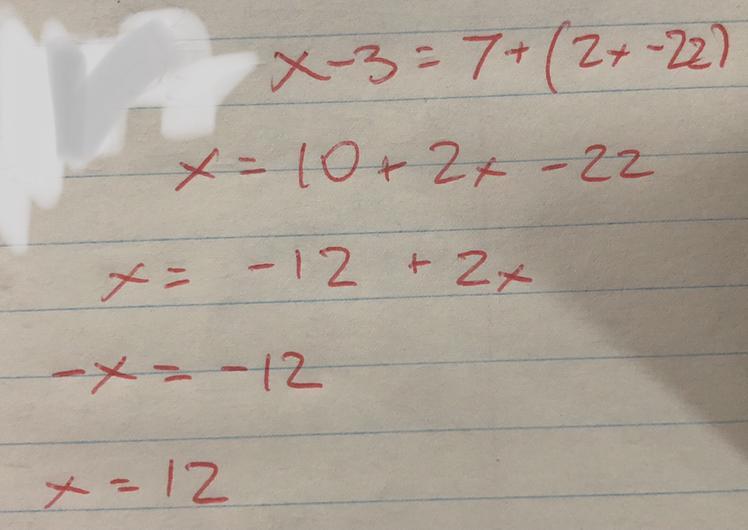 x-3=7+(2x-22)
x=10+2x-22
x=-12+2x
-x=-12
x=12